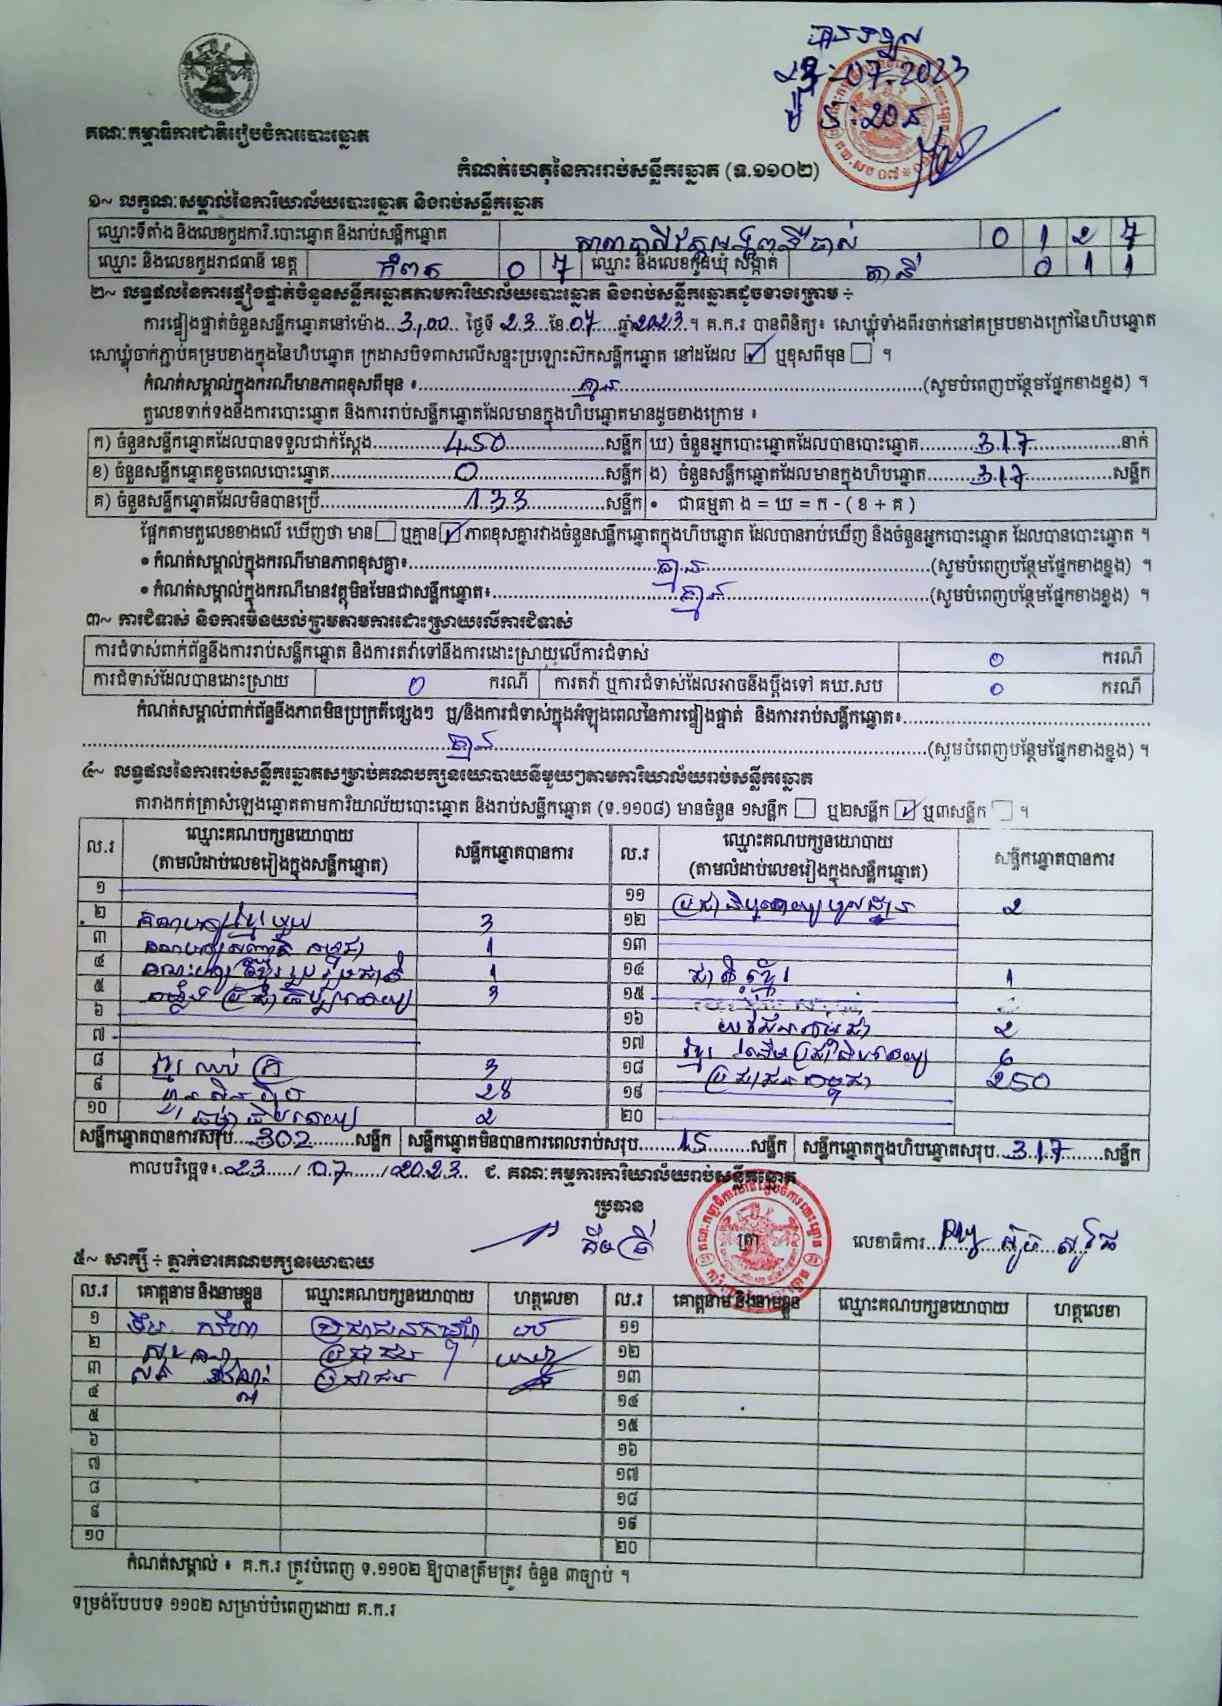 បានទទួល
23-07-2023
ម៉ោង 5:20 ន
គណៈកម្មាធិការជាតិរៀបចំការបោះឆ្នោត
កំណត់ហេតុនៃការរាប់សន្លឹកឆ្នោត (ទ.១១០២)
១~ លក្ខណៈសម្គាល់នៃការិយាល័យបោះឆ្នោត និងរាប់សន្លឹកឆ្នោត
ឈ្មោះទីតាំង និងលេខកូដការិ.បោះឆ្នោត និងរាប់សន្លឹកឆ្នោត 0 1 2 7
ឈ្មោះ និងលេខកូដរាជធានី ខេត្ត កំពត 0 7 ឈ្មោះ និងលេខកូដឃុំ សង្កាត់ តានី 0 1 1
២~ លទ្ធផលនៃការផ្ទៀងផ្ទាត់ចំនួនសន្លឹកឆ្នោតតាមការិយាល័យបោះឆ្នោត និងរាប់សន្លឹកឆ្នោតដូចខាងក្រោម ÷
ការផ្ទៀងផ្ទាត់ចំនួនសន្លឹកឆ្នោតនៅម៉ោង..3,00.. ថ្ងៃទី 23...ខែ.07....ឆ្នាំ2023.។ គ.ក.រ បានពិនិត្យ៖ សោឃ្លុំទាំងពីរចាក់នៅគម្របខាងក្រៅនៃហិបឆ្នោត
សោឃ្លុំចាក់ភ្ជាប់គម្របខាងក្នុងនៃហិបឆ្នោត ក្រដាសបិទពាសលើសន្ទះប្រឡោះស៊កសន្លឹកឆ្នោត នៅដដែល ☑ ឬខុសពីមុន ☐ ។
កំណត់សម្គាល់ក្នុងករណីមានភាពខុសពីមុន ៖ គ្មាន (សូមបំពេញបន្ថែមផ្នែកខាងខ្នង) ។
តួលេខទាក់ទងនឹងការបោះឆ្នោត និងការរាប់សន្លឹកឆ្នោតដែលមានក្នុងហិបឆ្នោតមានដូចខាងក្រោម ៖
ក) ចំនួនសន្លឹកឆ្នោតដែលបានទទួលជាក់ស្តែង 450 សន្លឹក ឃ) ចំនួនអ្នកបោះឆ្នោតដែលបានបោះឆ្នោត 317 នាក់
ខ) ចំនួនសន្លឹកឆ្នោតខូចពេលបោះឆ្នោត 0 សន្លឹក ង) ចំនួនសន្លឹកឆ្នោតដែលមានក្នុងហិបឆ្នោត 317 សន្លឹក
គ) ចំនួនសន្លឹកឆ្នោតដែលមិនបានប្រើ 133 សន្លឹក • ជាធម្មតា ង = ឃ = ក - ( ខ + គ )
ផ្អែកតាមតួលេខខាងលើ ឃើញថា មាន ☐ ឬគ្មាន ☑ ភាពខុសគ្នារវាងចំនួនសន្លឹកឆ្នោតក្នុងហិបឆ្នោត ដែលបានរាប់ឃើញ និងចំនួនអ្នកបោះឆ្នោត ដែលបានបោះឆ្នោត ។
• កំណត់សម្គាល់ក្នុងករណីមានភាពខុសគ្នា៖ គ្មាន (សូមបំពេញបន្ថែមផ្នែកខាងខ្នង) ។
• កំណត់សម្គាល់ក្នុងករណីមានវត្ថុមិនមែនជាសន្លឹកឆ្នោត៖ គ្មាន (សូមបំពេញបន្ថែមផ្នែកខាងខ្នង) ។
៣~ ការជំទាស់ និងការមិនយល់ព្រមតាមការដោះស្រាយលើការជំទាស់
ការជំទាស់ពាក់ព័ន្ធនឹងការរាប់សន្លឹកឆ្នោត និងការតវ៉ាទៅនឹងការដោះស្រាយលើការជំទាស់ 0 ករណី
ការជំទាស់ដែលបានដោះស្រាយ 0 ករណី ការតវ៉ា ឬការជំទាស់ដែលអាចនឹងប្តឹងទៅ គឃ.សប 0 ករណី
កំណត់សម្គាល់ពាក់ព័ន្ធនឹងភាពមិនប្រក្រតីផ្សេងៗ ឬ/និងការជំទាស់ក្នុងអំឡុងពេលនៃការផ្ទៀងផ្ទាត់ និងការរាប់សន្លឹកឆ្នោត៖
គ្មាន (សូមបំពេញបន្ថែមផ្នែកខាងខ្នង) ។
៤~ លទ្ធផលនៃការរាប់សន្លឹកឆ្នោតសម្រាប់គណបក្សនយោបាយនីមួយៗតាមការិយាល័យរាប់សន្លឹកឆ្នោត
តារាងកត់ត្រាសំឡេងឆ្នោតតាមការិយាល័យបោះឆ្នោត និងរាប់សន្លឹកឆ្នោត (ទ.១១០៨) មានចំនួន ១សន្លឹក ☐ ឬ២សន្លឹក ☑ ឬ៣សន្លឹក ☐ ។
ល.រ ឈ្មោះគណបក្សនយោបាយ (តាមលំដាប់លេខរៀងក្នុងសន្លឹកឆ្នោត) សន្លឹកឆ្នោតបានការ ល.រ ឈ្មោះគណបក្សនយោបាយ (តាមលំដាប់លេខរៀងក្នុងសន្លឹកឆ្នោត) សន្លឹកឆ្នោតបានការ
១ ១១ ប្រជាធិបតេយ្យមូលដ្ឋាន 2
២ គណបក្សឃ្មុំ 3 ១២
៣ 1 ១៣
៤ គណបក្សខ្មែររួបរួមជាតិ 1 ១៤ ជាតិខ្មែរ 1
៥ កម្លាំងប្រជាធិបតេយ្យ 3 ១៥
៦ ១៦ យុវជនកម្ពុជា 2
៧ ១៧ ខ្មែរ 6
៨ ខ្មែរឈប់ក្រ 3 ១៨ ប្រជាជនកម្ពុជា 250
៩ ហ្វុនស៊ិនប៉ិច 28 ១៩
១០ ធម្មាធិបតេយ្យ 2 ២០
សន្លឹកឆ្នោតបានការសរុប...302...សន្លឹក សន្លឹកឆ្នោតមិនបានការពេលរាប់សរុប...15...សន្លឹក សន្លឹកឆ្នោតក្នុងហិបឆ្នោតសរុប...317...សន្លឹក
កាលបរិច្ឆេទ៖ 23/07/2023 ជ. គណៈកម្មការការិយាល័យរាប់សន្លឹកឆ្នោត
ប្រធាន
ត្រា
លេខាធិការ
៥~ សាក្សី ÷ ភ្នាក់ងារគណបក្សនយោបាយ
ល.រ គោត្តនាម និងនាមខ្លួន ឈ្មោះគណបក្សនយោបាយ ហត្ថលេខា ល.រ គោត្តនាម និងនាមខ្លួន ឈ្មោះគណបក្សនយោបាយ ហត្ថលេខា
១ ប្រជាជនកម្ពុជា ១១
២ ប្រជាជន ១២
៣ ប្រជាជន ១៣
៤ ១៤
៥ ១៥
៦ ១៦
៧ ១៧
៨ ១៨
៩ ១៩
១០ ២០
កំណត់សម្គាល់ ៖ គ.ក.រ ត្រូវបំពេញ ទ.១១០២ ឱ្យបានត្រឹមត្រូវ ចំនួន ៣ច្បាប់ ។
ទម្រង់បែបបទ ១១០២ សម្រាប់បំពេញដោយ គ.ក.រ